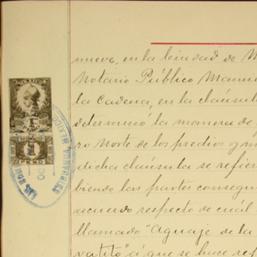 nueve, en la Ciudad de M
Notario Público Manue
la Cadena, en la cláusula
determinó la manera de
ro Norte de los predios y m
dicha cláusula se refier
biendo las partes consegu
acuerdo respecto de cuál
llamado "Aguaje de la
vatito" á que se hace ref